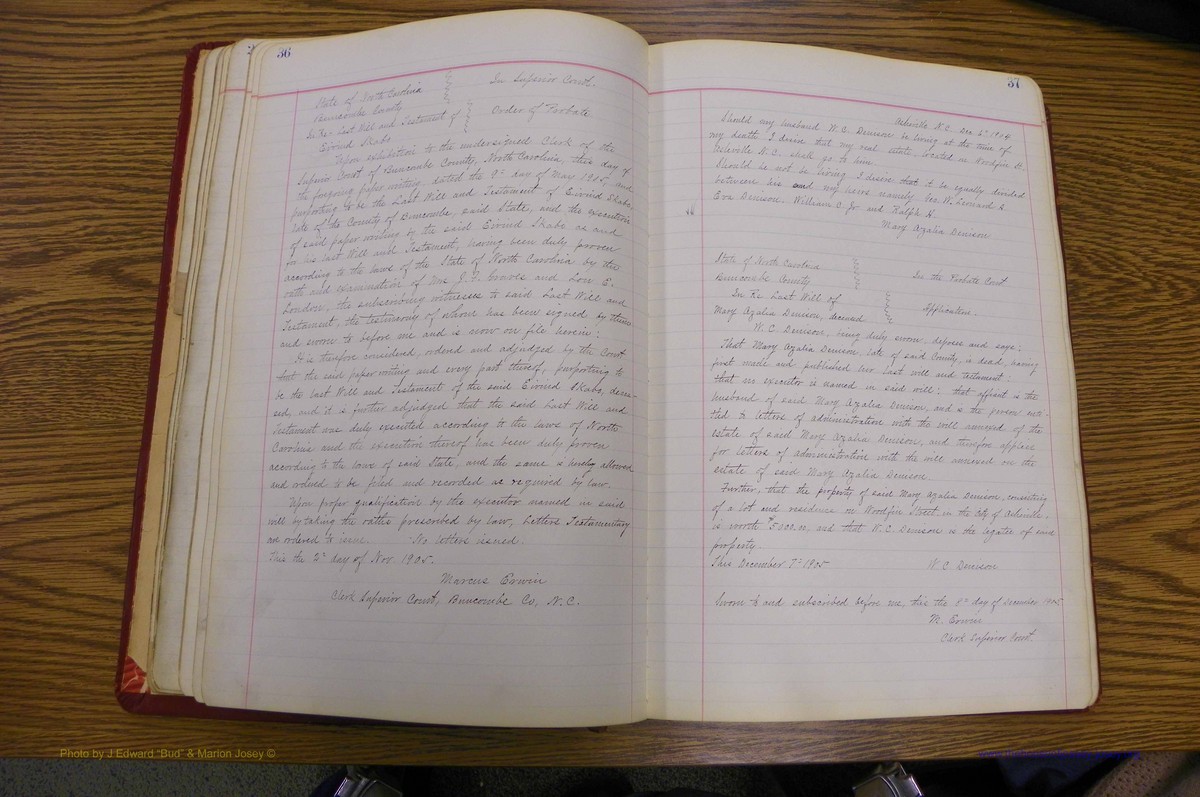 36
State of North Carolina
Buncombe County
In Superior Court.
In Re: Last Will and Testament of
Eivind Skabo
Order of Probate
Upon exhibition to the undersigned Clerk of the
Superior Court of Buncombe County, North Carolina, this day of
the foregoing paper writing, dated the 8" day of May 1905, and
purporting to be the Last Will and Testament of Eivind Skabo,
late of the County of Buncombe, said State, and the execution
of said paper writing by the said Eivind Skabo as and
for his last Will and Testament, having been duly proven
according to the laws of the State of North Carolina by the
oath and examination of Mrs J. F. Graves and Lon E.
London, the subscribing witnesses to said Last Will and
Testament, the testimony of whom has been signed by them
and sworn to before me and is now on file herein:
It is therefore considered, ordered and adjudged by the Court
that the said paper writing and every part thereof, purporting to
be the last Will and Testament of the said Eivind Skabo, decea-
sed, and it is further adjudged that the said Last Will and
Testament was duly executed according to the laws of North
Carolina and the execution thereof has been duly proven
according to the laws of said State, and the same is hereby allowed
and ordered to be filed and recorded as required by law.
Upon proper qualification by the executor named in said
will by taking the oaths prescribed by law, Letters Testamentary
are ordered to issue. No letters issued.
This the 2" day of Nov. 1905.
Marcus Erwin
Clerk Superior Court, Buncombe Co, N.C.
37
Asheville N.C. Dec 1904
Should my husband W. C. Denison be living at the time of
my death I desire that my real estate, located on Woodfin St.
Asheville N.C. shall go to him
Should he not be living I desire that it be equally divided
between his and my heirs namely Geo. W. Leonard S.
Eva Denison, William C. Jr. and Ralph H.
Mary Azalia Denison
State of North Carolina
Buncombe County
In the Probate Court
In Re Last Will of
Mary Azalia Denison, deceased
Application.
W. C. Denison, being duly sworn, deposes and says:
That Mary Azalia Denison, late of said County, is dead, having
first made and published her last will and testament:
that no executor is named in said will: that affiant is the
husband of said Mary Azalia Denison, and is the person enti-
tled to letters of administration with the will annexed of the
estate of said Mary Azalia Denison, and therefore applies
for letters of administration with the will annexed on the
estate of said Mary Azalia Denison.
Further, that the property of said Mary Azalia Denison, consisting
of a lot and residence on Woodfin Street, in the City of Asheville,
is worth $5000.00, and that W. C. Denison is the legatee of said
property.
This December 7" 1905
W. C. Denison
Sworn to and subscribed before me, this the day of December 1905
M. Erwin
Clerk Superior Court.
Photo by J Edward "Bud" & Marion Josey ©